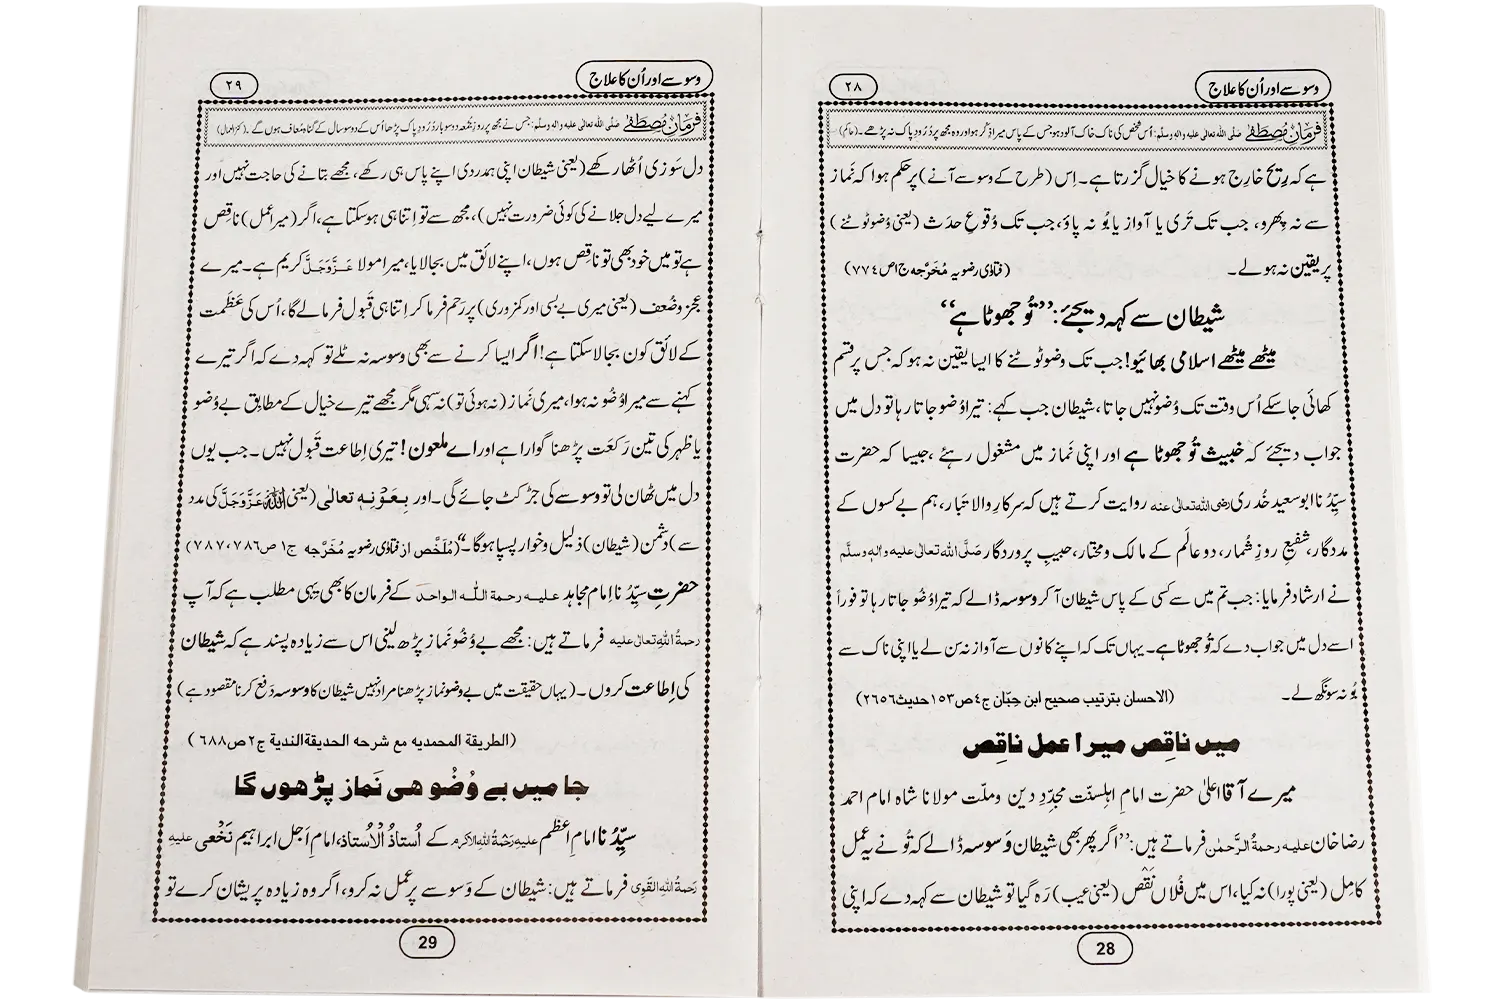 وسوسے اور اُن کا علاج
۲۸
فرمانِ مصطفٰے صلی اللہ تعالی علیہ والہ وسلم: اُس شخص کی ناک خاک آلود ہو جس کے پاس میرا ذکر ہو اور وہ مجھ پر دُرُودِ پاک نہ پڑھے۔ (حاکم)
ہے کہ رِیح خارِج ہونے کا خیال گزرتا ہے۔ اِس (طرح کے وسوسے آنے) پر حکم ہوا کہ نَماز
سے نہ پِھرو، جب تک تَری یا آواز یا بُو نہ پاؤ، جب تک وُقوعِ حدَث (یعنی وُضو ٹوٹنے)
پر یقین نہ ہولے۔ (فتاوٰی رضویہ مُخَرَّجہ ج۱ص۷۷۴)
شیطان سے کہہ دیجئے: ’’تُو جھوٹا ہے‘‘
میٹھے میٹھے اسلامی بھائیو! جب تک وضو ٹوٹنے کا ایسا یقین نہ ہو کہ جس پر قسم
کھائی جاسکے اُس وقت تک وُضو نہیں جاتا، شیطان جب کہے: تیرا وُضو جاتا رہا تو دل میں
جواب دیجئے کہ خبیث تُو جھوٹا ہے اور اپنی نَماز میں مشغول رہئے، جیسا کہ حضرت
سیِّدُنا ابو سعید خُدری رضی اللہ تعالٰی عنہ روایت کرتے ہیں کہ سرکارِ والا تبار، ہم بے کسوں کے
مددگار، شفیعِ روزِ شُمار، دو عالَم کے مالک و مختار، حبیبِ پروردگار صَلَّی اللہ تعالٰی علیہ واٰلہٖ وسلَّم
نے ارشاد فرمایا: جب تم میں سے کسی کے پاس شیطان آ کر وسوسہ ڈالے کہ تیرا وُضو جاتا رہا تو فوراً
اسے دل میں جواب دے کہ تُو جھوٹا ہے۔ یہاں تک کہ اپنے کانوں سے آواز نہ سن لے یا اپنی ناک سے
بُو نہ سونگھ لے۔ (الاحسان بترتیب صحیح ابن حِبّان ج٤ص١٥٣ حدیث٢٦٥٦)
میں ناقِص میرا عمل ناقِص
میرے آقا اعلیٰ حضرت امامِ اہلسنّت مجدِّدِ دین وملّت مولانا شاہ امام احمد
رضا خان علیہ رحمۃُ الرَّحمٰن فرماتے ہیں: ’’اگر پھر بھی شیطان وَسوسہ ڈالے کہ تُو نے یہ عمل
کامِل (یعنی پورا) نہ کیا، اس میں فُلاں نقص (یعنی عیب) رَہ گیا تو شیطان سے کہہ دے کہ اپنی
28
وسوسے اور اُن کا علاج
۲۹
فرمانِ مصطفٰے صلی اللہ تعالی علیہ والہ وسلم: جس نے مجھ پر روزِ جُمعہ دو سو بار دُرُودِ پاک پڑھا اُس کے دو سو سال کے گناہ مُعاف ہوں گے۔ (کنزالعمال)
دل سَوزی اُٹھا رکھے (یعنی شیطان اپنی ہمدردی اپنے پاس ہی رکھے، مجھے بتانے کی حاجت نہیں اور
میرے لیے دل جلانے کی کوئی ضرورت نہیں)، مجھ سے تو اِتنا ہی ہو سکتا ہے، اگر (میرا عمل) ناقِص
ہے تو میں خود بھی تو ناقِص ہوں، اپنے لائق میں بجا لایا، میرا مولا عَزَّوَجَلَّ کریم ہے۔ میرے
عِجز و ضُعف (یعنی میری بے بسی اور کمزوری) پر رَحم فرما کر اِتنا ہی قَبول فرمالے گا، اُس کی عَظَمت
کے لائق کون بجا لا سکتا ہے! اگر ایسا کرنے سے بھی وسوسہ نہ ٹلے تو کہہ دے کہ اگر تیرے
کہنے سے میرا وُضُو نہ ہوا، میری نَماز (نہ ہوئی تو) نہ سہی مگر مجھے تیرے خیال کے مطابق بے وُضو
یا ظہر کی تین رَکعَت پڑھنا گوارا ہے اور اے ملعون! تیری اِطاعت قَبول نہیں۔ جب یوں
دل میں ٹھان لی تو وسوسے کی جڑ کٹ جائے گی۔ اور بِعَوْنِہٖ تعالٰی (یعنی اللہ عَزَّوَجَلَّ کی مدد
سے) دشمن (شیطان) ذلیل و خوار پسپا ہوگا۔‘‘ (مُلَخَّص از فتاوٰی رضویہ مُخَرَّجہ ج۱ ص۷۸۶،۷۸۷)
حضرتِ سیِّدُنا اِمام مجاہد علیہ رحمۃ اللہ الواحد کے فرمان کا بھی یِہی مطلب ہے کہ آپ
رحمۃُ اللہِ تعالٰی علیہ فرماتے ہیں: مجھے بے وُضُو نَماز پڑھ لینی اس سے زیادہ پسند ہے کہ شیطان
کی اِطاعت کروں۔ (یہاں حقیقت میں بے وضو نماز پڑھنا مراد نہیں شیطان کا وسوسہ دَفع کرنا مقصود ہے)
(الطریقۃ المحمدیہ مع شرحہ الحدیقۃالندیۃ ج۲ص۶۸۸)
جا میں بے وُضُو ھی نَماز پڑھوں گا
سیِّدُنا امامِ اعظم علیہ رَحمۃُ اللہِ الاکرم کے اُستاذُ الْاُستاذ، امامِ اَجل ابراہیم نَخْعی علیہ
رَحمۃُ اللہِ القَوِی فرماتے ہیں: شیطان کے وَسوسے پر عمل نہ کرو، اگر وہ زیادہ پریشان کرے تو
29